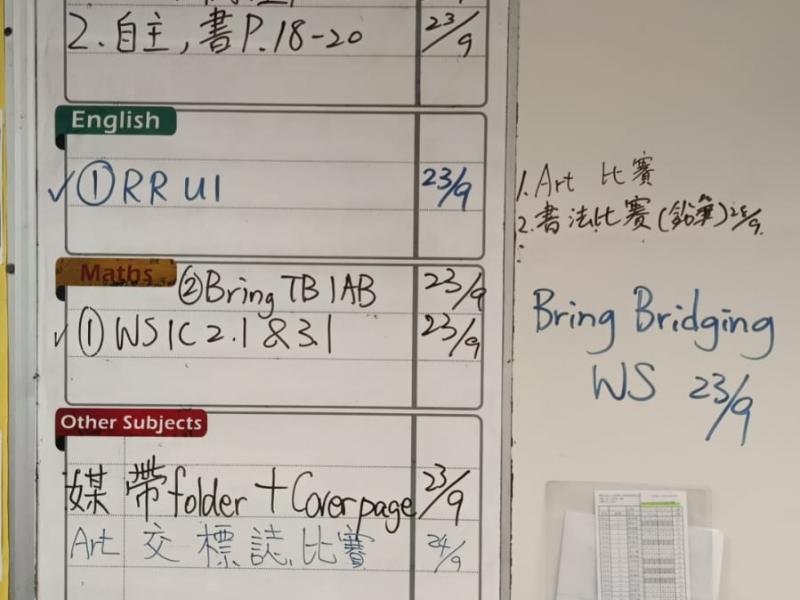 2. 自主, 書P.18-20 23/9
English
✓ ① RR U1 23/9
Maths
② Bring TB 1AB 23/9
✓ ① WS 1C 2.1 & 3.1 23/9
Other Subjects
媒 帶folder + Coverpage 23/9
Art 交 標誌比賽 24/9
1. Art 比賽
2. 書法比賽(鉛筆) 25/9
Bring Bridging
WS 23/9